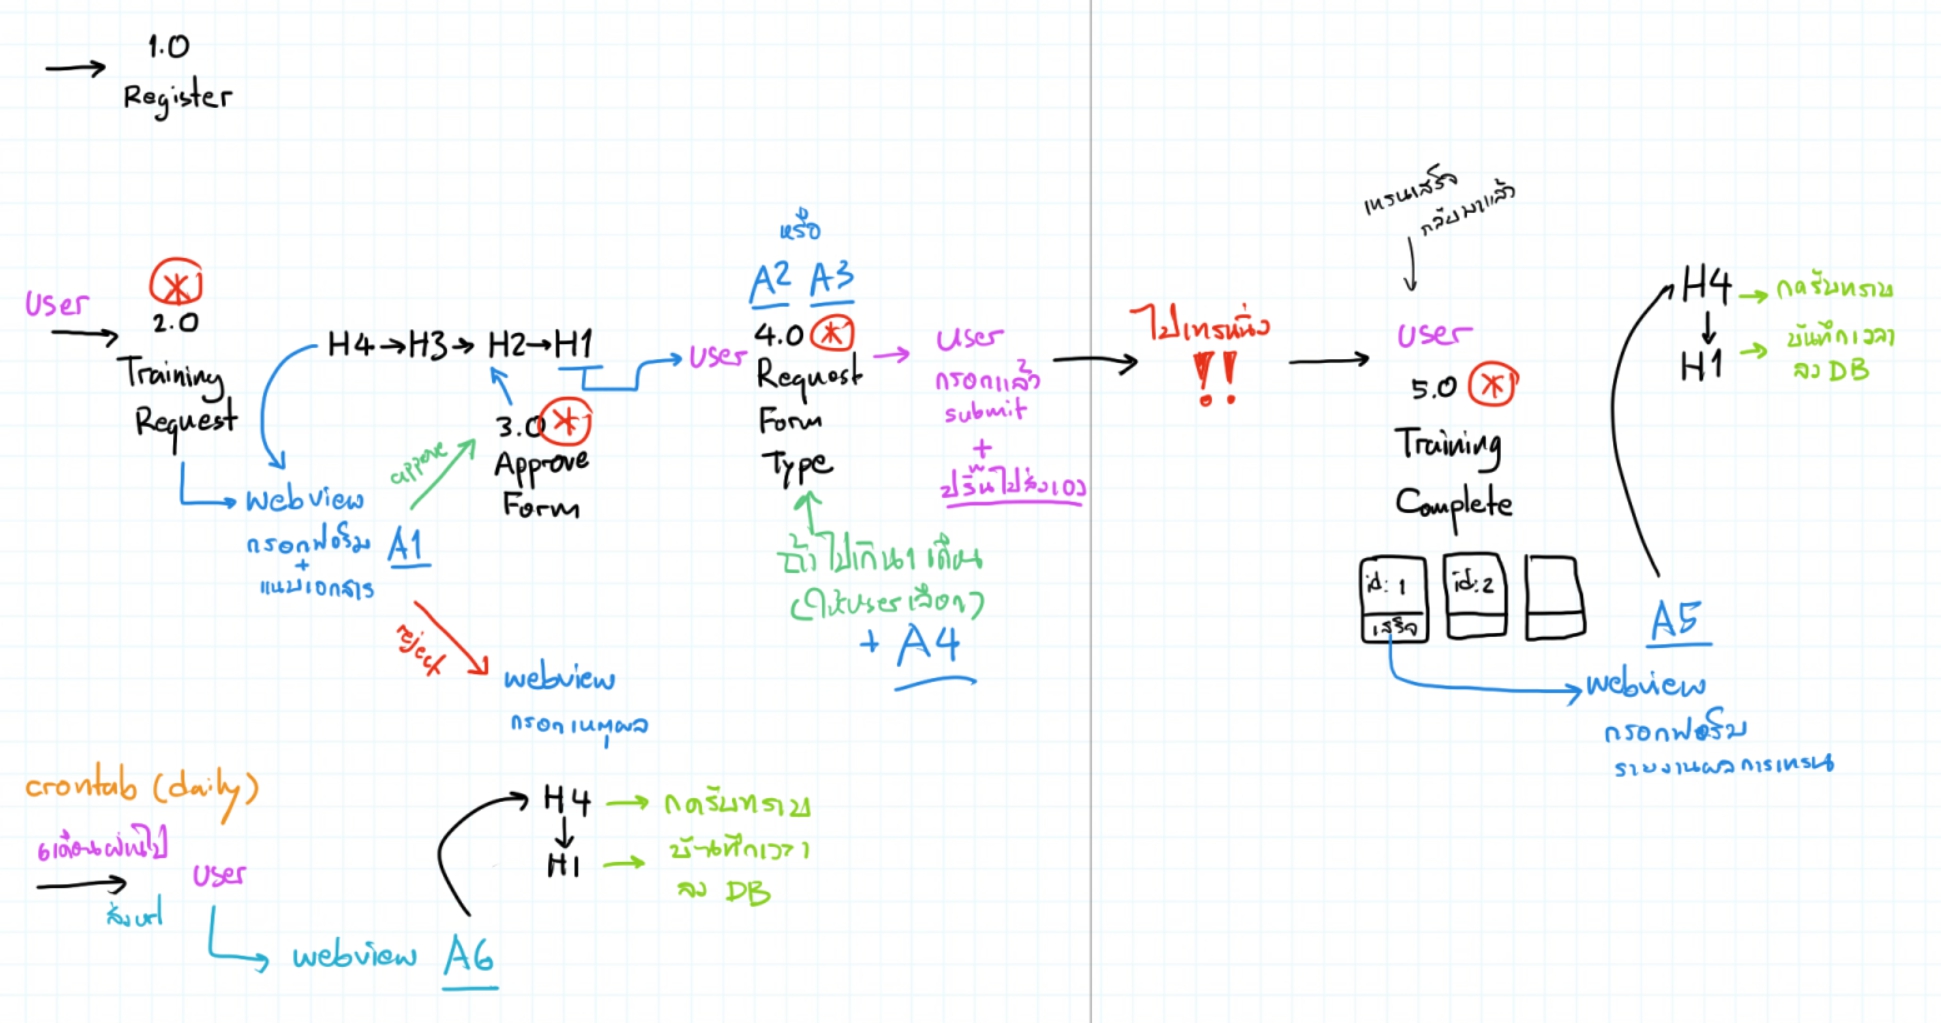 1.0
Register
User
2.0
Training
Request
webview
กรอกฟอร์ม
+
แนบเอกสาร
A1
H4→H3→H2→H1
approve
3.0
Approve
Form
reject
webview
กรอกเหตุผล
หรือ
A2 A3
user
4.0
Request
Form
Type
ถ้าไปเกิน 1 เดือน
(ให้user เลือก)
+ A4
user
กรอกแล้ว
submit
+
ปริ้นไปส่งเอง
ไปเทรนนิ่ง
!!
เทรนเสร็จ
กลับมาแล้ว
user
5.0
Training
Complete
id: 1
เสร็จ
id: 2
webview
กรอกฟอร์ม
รายงานผลการเทรน
A5
H4
กดรับทราบ
H1
บันทึกเวลา
ลง DB
crontab (daily)
6เดือนผ่านไป
user
ส่ง url
webview A6
H4
กดรับทราบ
H1
บันทึกเวลา
ลง DB